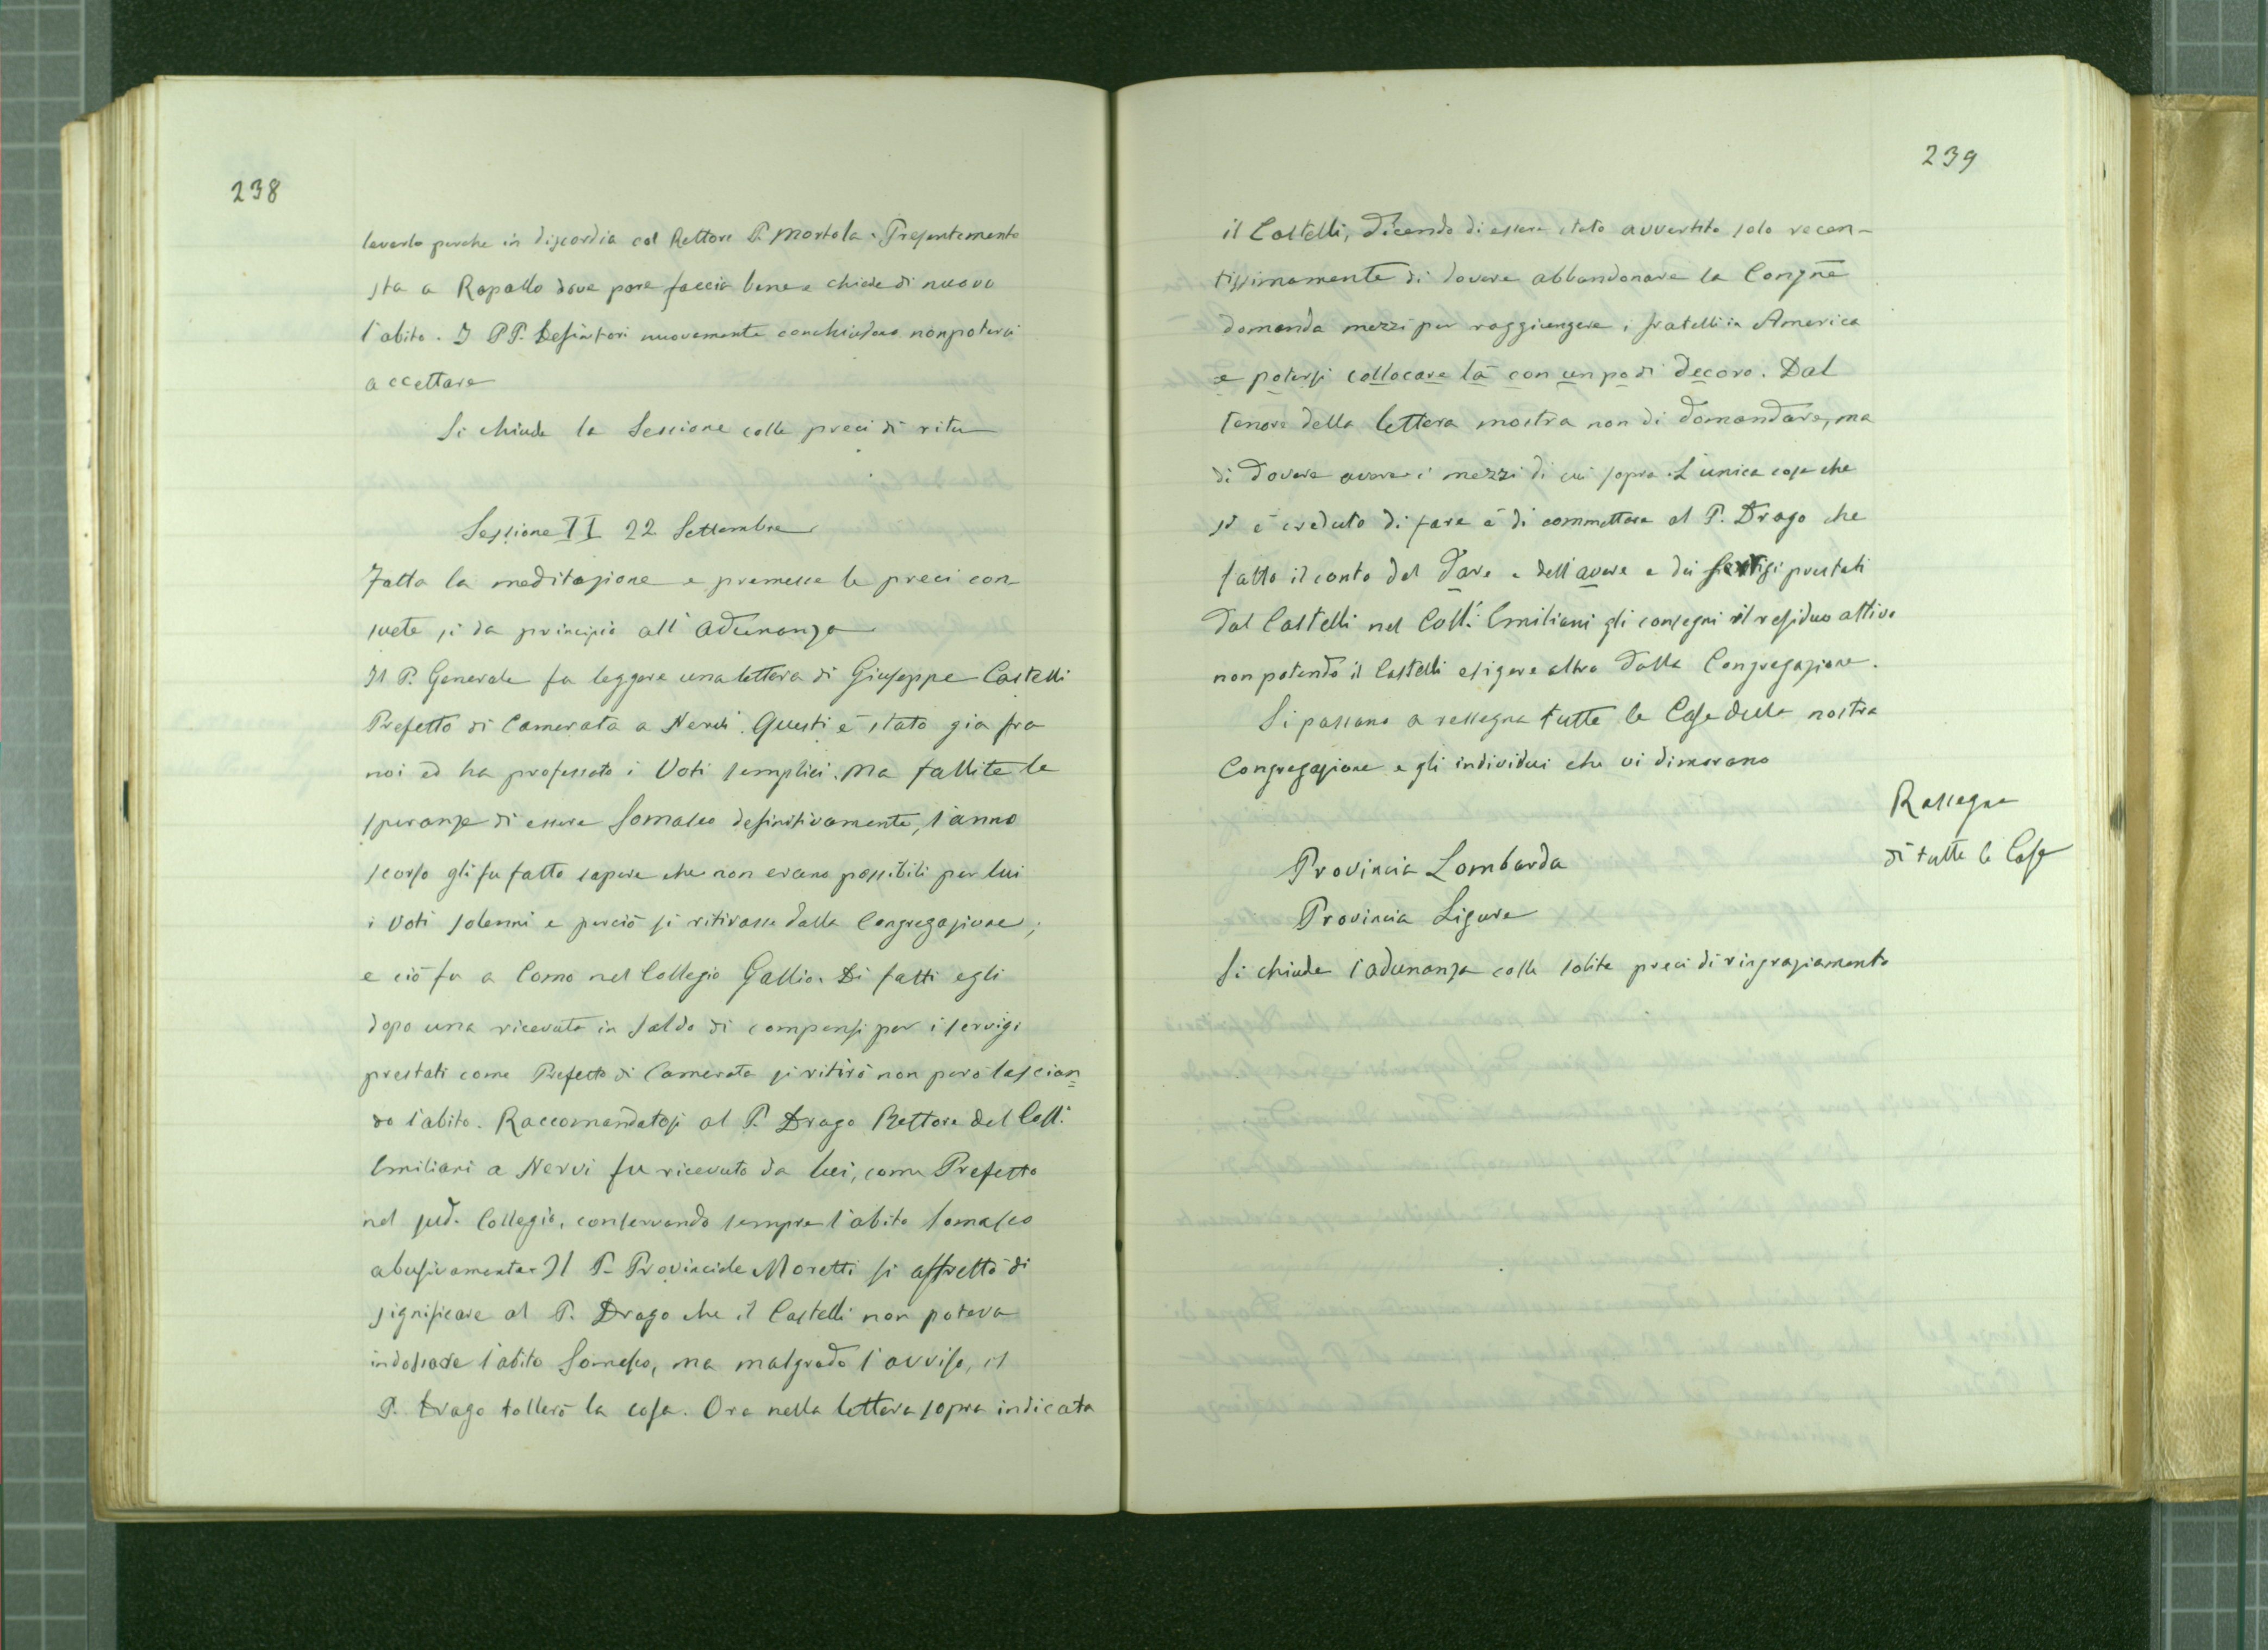 238
levarlo perche in discordia col Rettore P. Mortola. Presentemente
sta a Rapallo dove pare faccia bene e chiede di nuovo
l'abito. I PP. Definitori nuovamente conchiudono non potersi
accettare
Si chiude la Sessione colle preci di rito
Sessione II 22 Settembre
Fatta la meditazione e premesse le preci con-
suete si da principio all'adunanza
Il P. Generale fa leggere una lettera di Giuseppe Castelli
Prefetto di Camerata a Nervi. Questi è stato gia fra
noi ed ha professato i Voti semplici. Ma fallite le
speranze di essere Somasco definitivamente, l'anno
scorso gli fu fatto sapere che non erano possibili per lui
i Voti solenni e perciò si ritirasse dalla Congregazione;
e ciò fu a Como nel Collegio Gallio. Di fatti egli
dopo una ricevuta in saldo di compensi per i servigi
prestati come Prefetto di Camerata si ritirò non però lascian=
do l'abito. Raccomandatosi al P. Drago Rettore del Coll.
Emiliani a Nervi fu ricevuto da lui, come Prefetto
nel sud. Collegio, conservando sempre l'abito Somasco
abusivamente. Il P. Provinciale Moretti si affrettò di
significare al P. Drago che il Castelli non poteva
indossare l'abito Somasco, ma malgrado l'avviso, il
P. Drago tollerò la cosa. Ora nella lettera sopra indicata
239
il Castelli, dicendo di essere stato avvertito solo recen-
tissimamente di dovere abbandonare la Congñe
domanda mezzi per raggiungere i fratelli in America
e potersi collocare là con un po di decoro. Dal
tenore della lettera mostra non di domandare, ma
di dovere avere i mezzi di cui sopra. L'unica cosa che
si è creduto di fare è di commettere al P. Drago che
fatto il conto del dare e dell'avere e dei servigi prestati
dal Castelli nel Coll. Emiliani gli consegni il residuo attivo
non potendo il Castelli esigere altro dalla Congregazione.
Si passano a rassegna tutte le Case della nostra
Congregazione e gli individui che vi dimorano
Rassegna
di tutte le Case
Provincia Lombarda
Provincia Ligure
Si chiude l'adunanza colle solite preci di ringraziamento